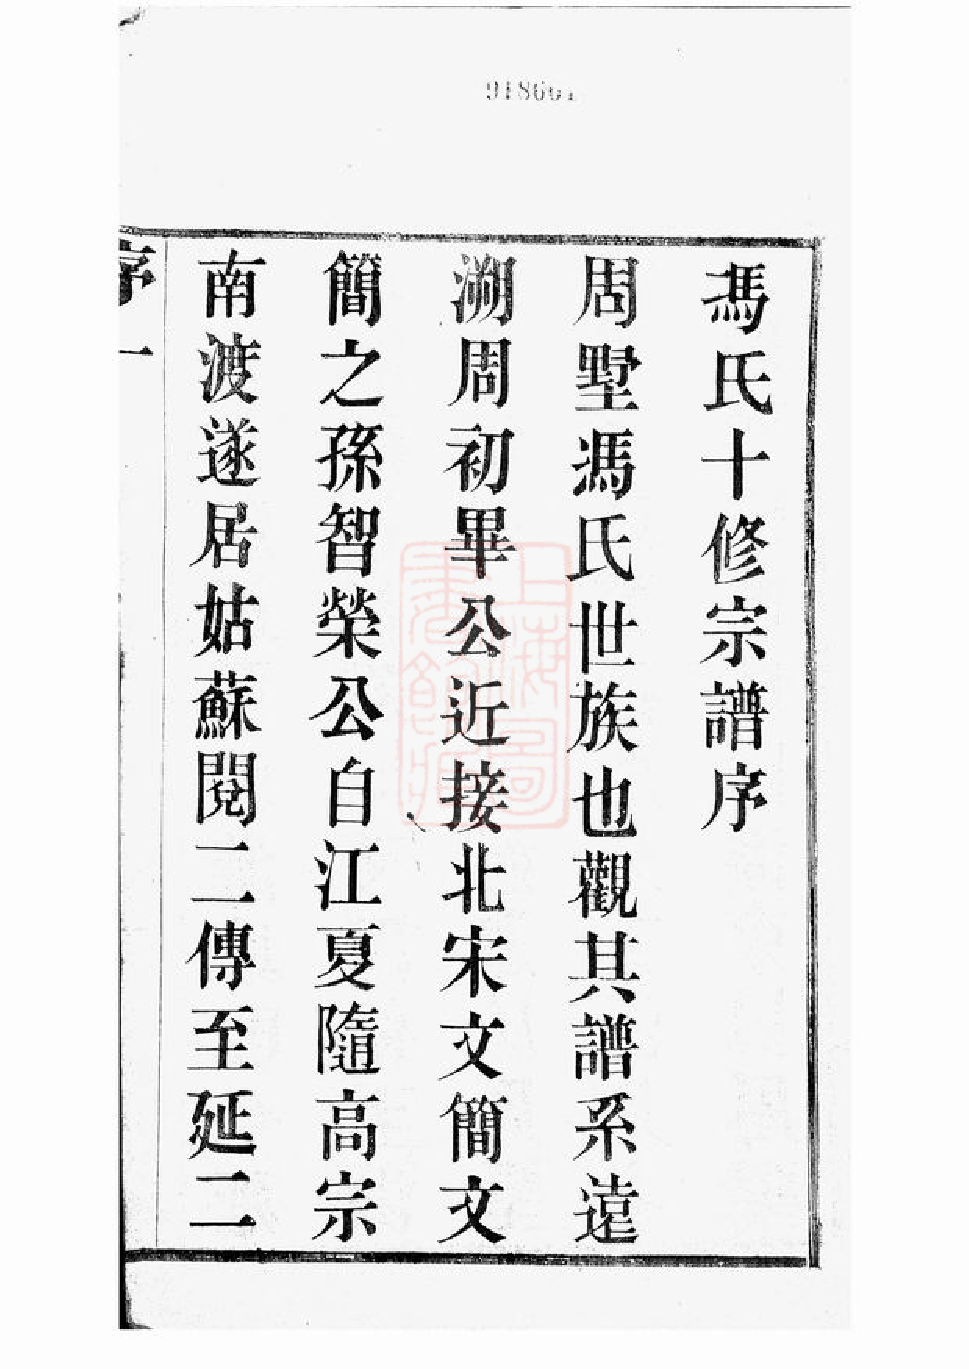 918661
馮氏十修宗譜序
周墅馮氏世族也觀其譜系遠
溯周初畢公近接北宋文簡文
簡之孫智榮公自江夏隨高宗
南渡遂居姑蘇閱二傳至延二
序 一
上海圖書館藏